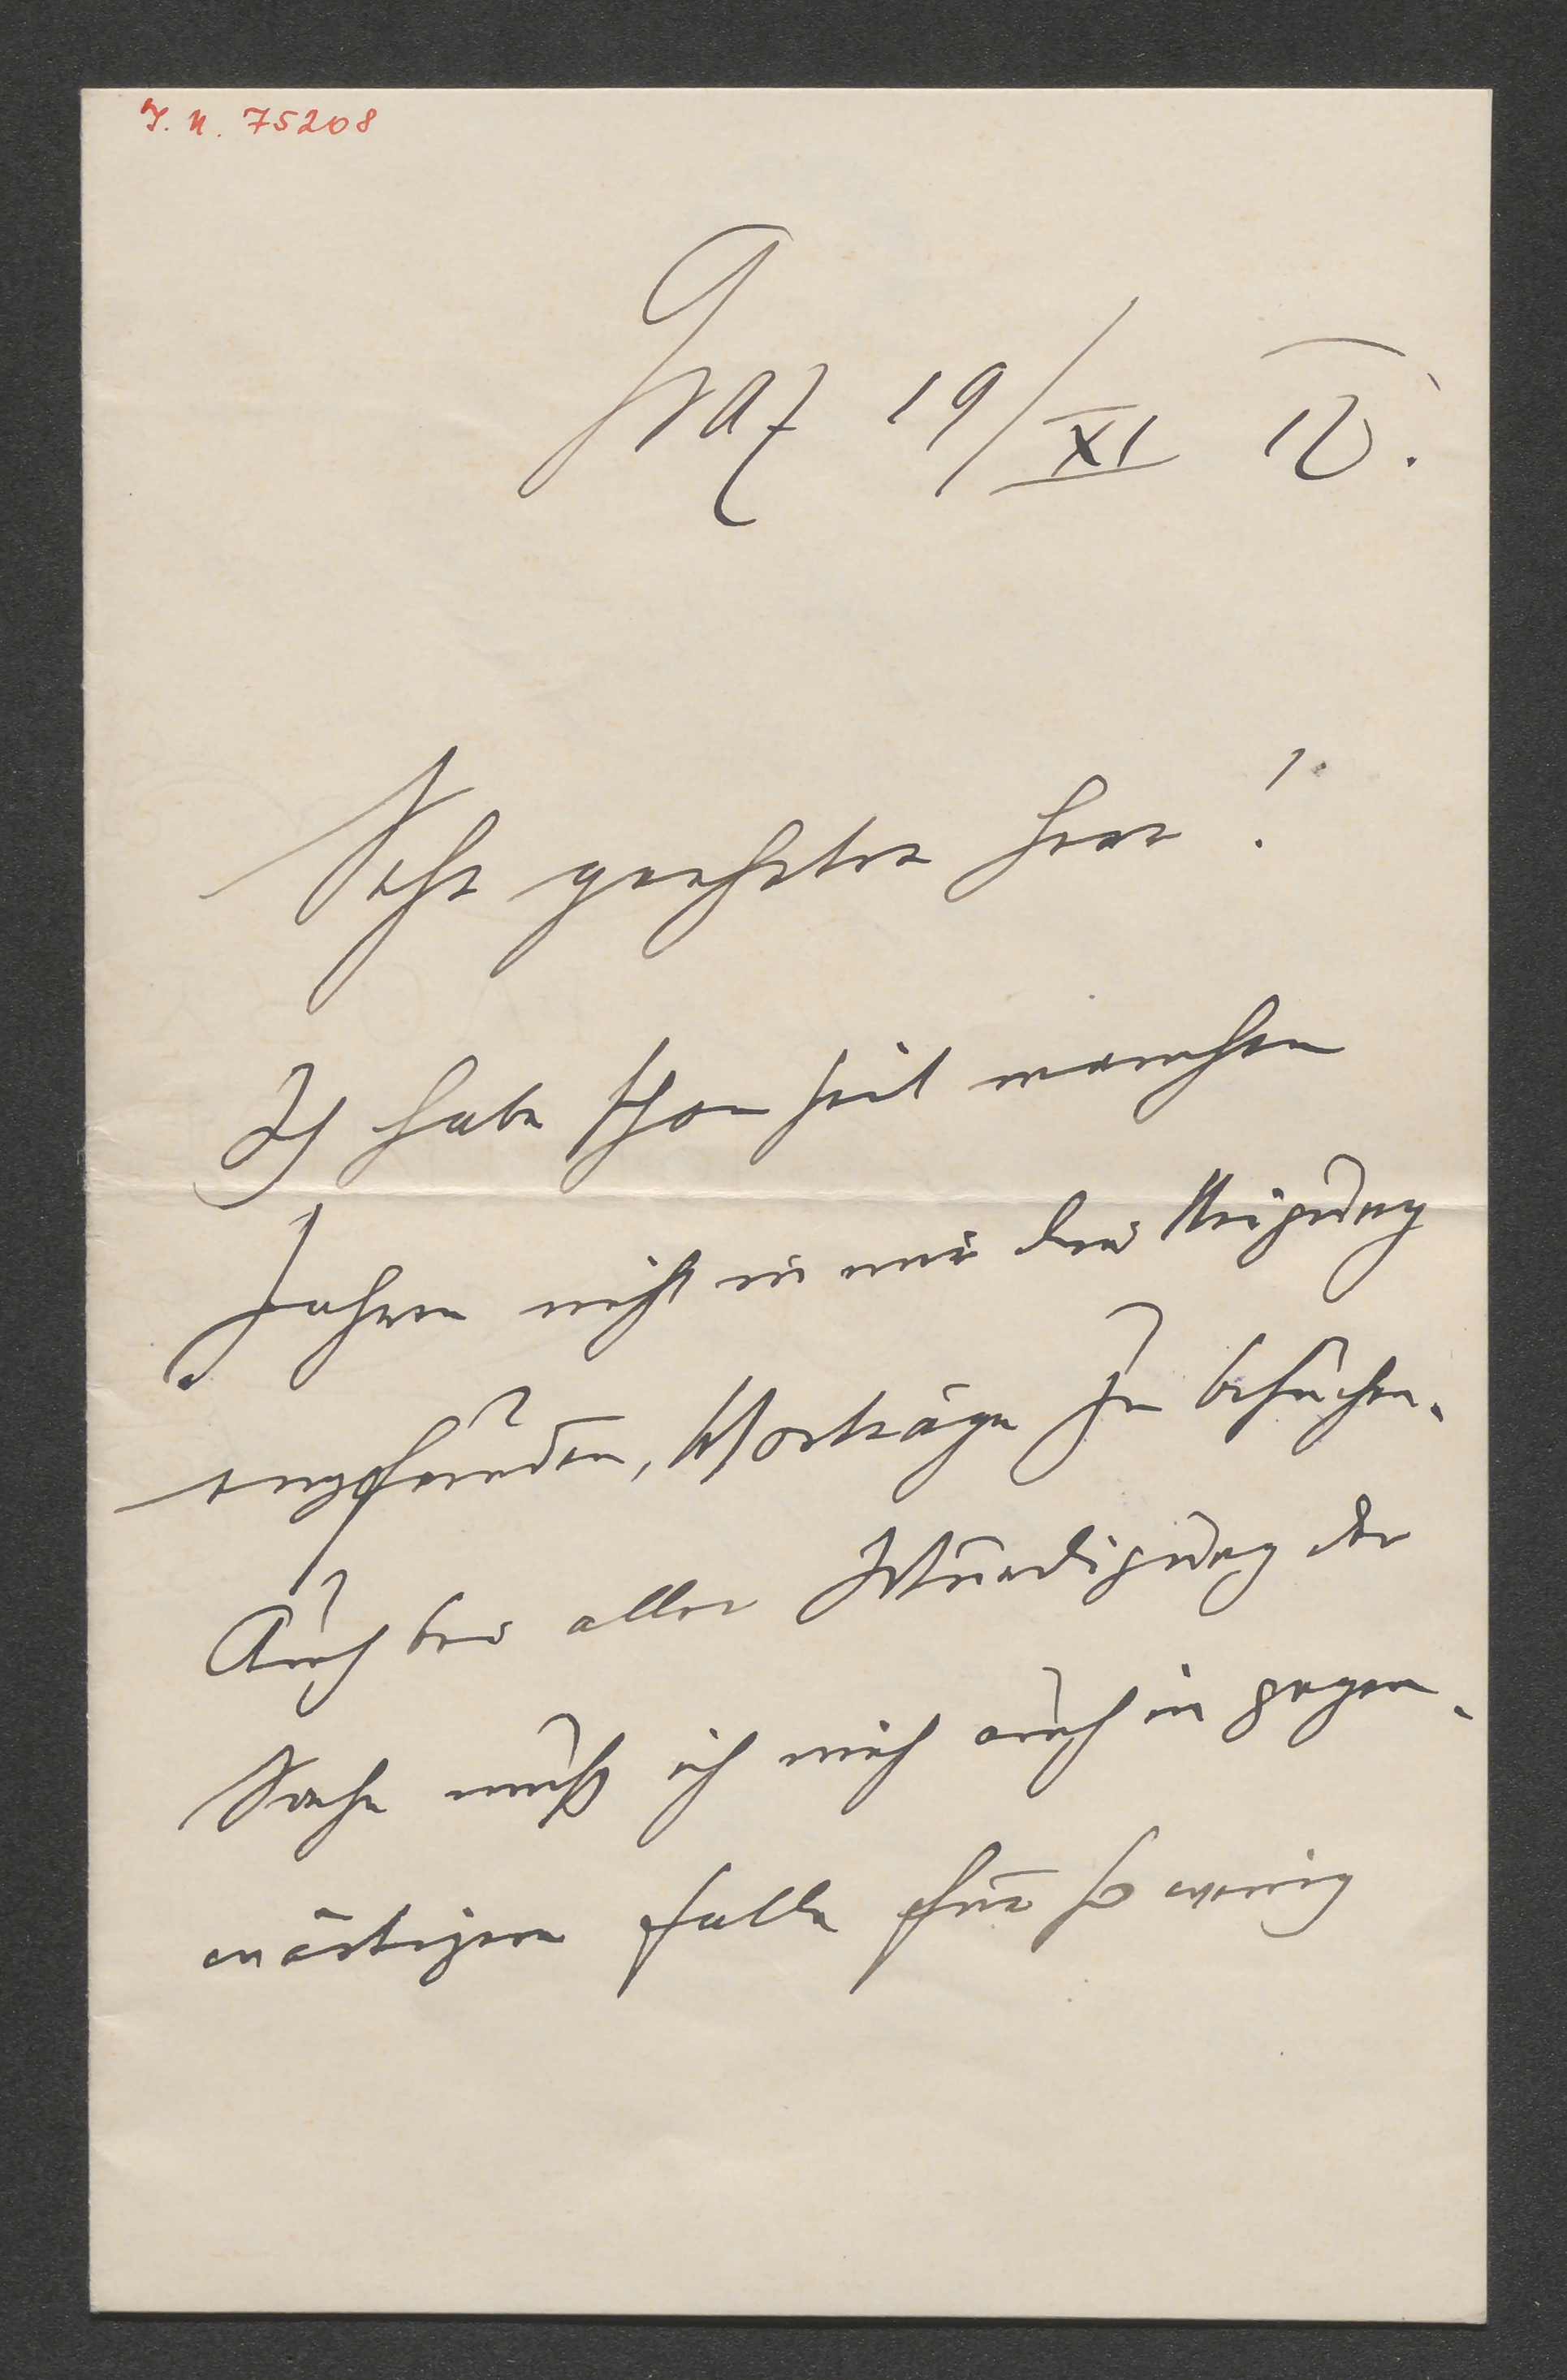 I. N. 75208
Graz 19/XI 12.
Sehr geehrter Herr!
Ich habe schon seit manchen
Jahren nicht in mir die Neigung
empfunden, Vorträge zu besuchen.
Auch bei aller Würdigung der
Sache muß ich mich auch in gegen-
wärtigem Falle für so wenig